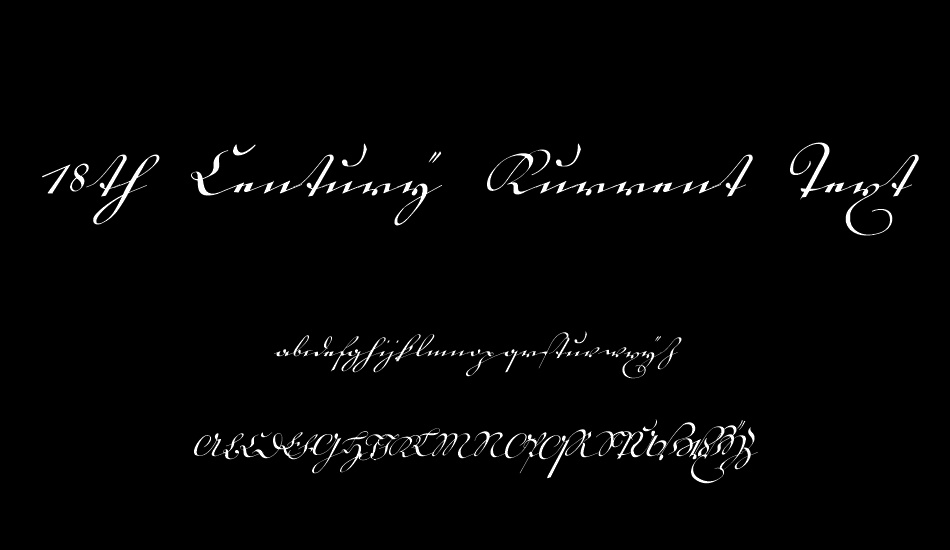 18th Century Kurrent Text
abcdefghijklmnopqrstuvwxyz
ABCDEFGHIJKLMNOPQRSTUVWXYZ